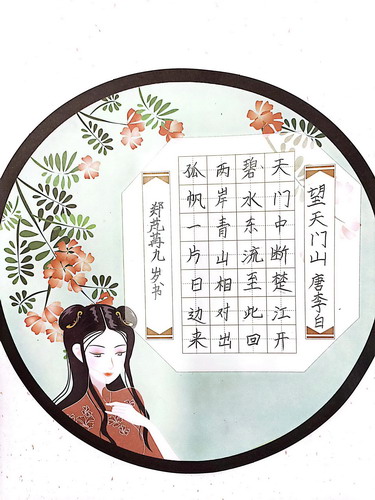 望天门山 唐李白
天门中断楚江开
碧水东流至此回
两岸青山相对出
孤帆一片日边来
郑芃苒九岁书